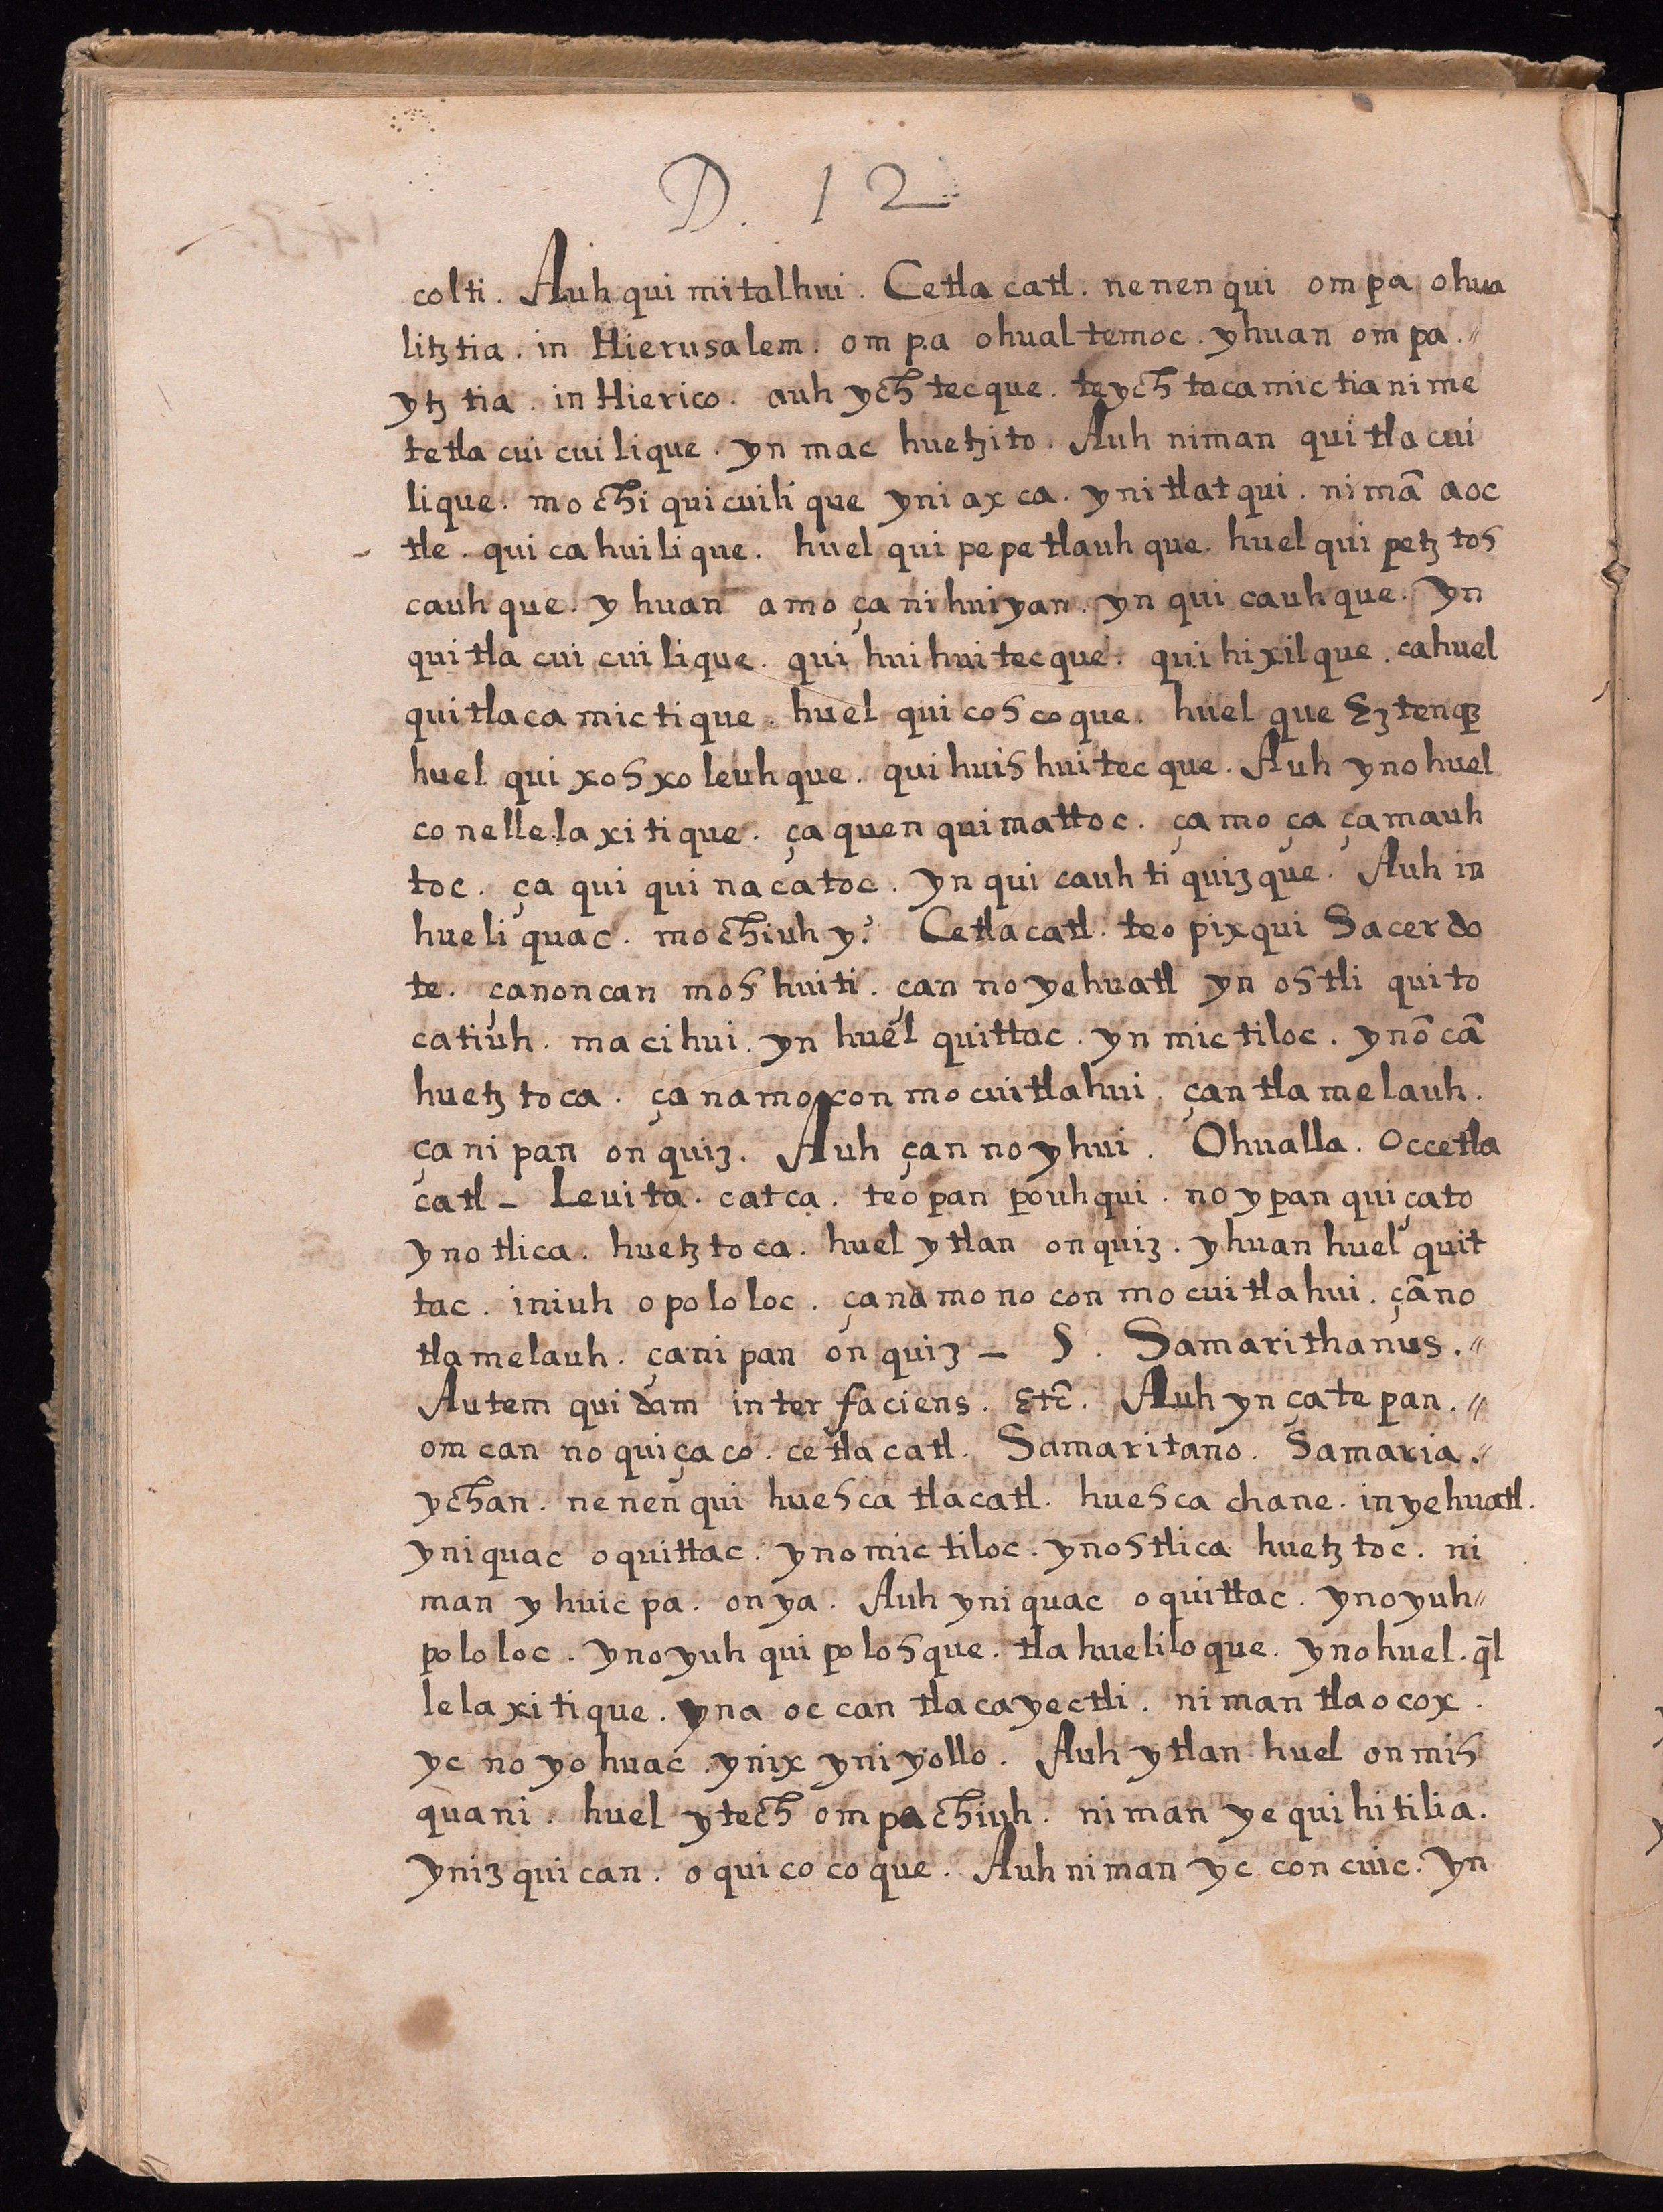 D. 12
colti. Auh qui mitalhui. Cetlacatl. nenenqui ompa ohua
litztia. in Hierusalem. ompa ohualtemoc. yhuan ompa.//
ytztia. in Hierico. auh ychtecque. teychtacamictianime
tetlacuicuilique. yn mac huetzito. Auh niman quitlacui
lique. mochi quicuilique yniaxca. ynitlatqui. nimã aoc
tle. quicahuilique. huel quipepetlauhque. huel quipetztos
cauhque. yhuan amo çanihuiyan. yn quicauhque. Yn
quitlacuicuilique. quihuihuitecque. quihixilque. cahuel
quitlacamictique. huel quicoscoque. huel que Eztenqꝫ
huel quixosxoleuhque. quihuishuitecque. Auh ynohuel
conellelaxitique. çaquen quimattoc. çamo ça çamauh
toc. ça quiquinacatoc. yn quicauhtiquizque. Auh in
hueliquac. mochiuh y? Cetlacatl. teopixqui Sacerdo
te. çanoncan moshuiti. çan noyehuatl yn ostli quito
catiuh. macihui. yn huel quittac. yn mictiloc. ynõcã
huetztoca. çanamo conmocuitlahui. çantlamelauh.
çanipan onquiz. Auh çannoyhui. Ohualla. Occetla
catl - Leuita. catca. teopan pouhqui. noypan quiçato
ynotlica. huetztoca. huel ytlan onquiz. yhuan huel quit
tac. iniuh opololoc. çanamono conmocuitlahui. çãno
tlamelauh. çanipan onquiz - §. Samarithanus.//
Autem quidam inter faciens. Etc̃. Auh ynçatepan.//
omcan noquiçaco. cetlacatl. Samaritano. Samaria.//
ychan. nenenqui huesca tlacatl. huesca chane. inyehuatl.
yniquac oquittac. ynomictiloc. ynostlica huetztoc. ni
man yhuicpa. onya. Auh yniquac oquittac. ynoyuh//
pololoc. ynoyuh quipolosque. tlahueliloque. ynohuel. q̃l
lelaxitique. yna occan tlacayectli. niman tlaocox.
yc noyohuac. ynix yniyollo. Auh ytlan huel onmis
quani. huel ytech ompachiuh. niman ye quihitilia.
ynizquican. oquicocoque. Auh niman yc concuic. Yn